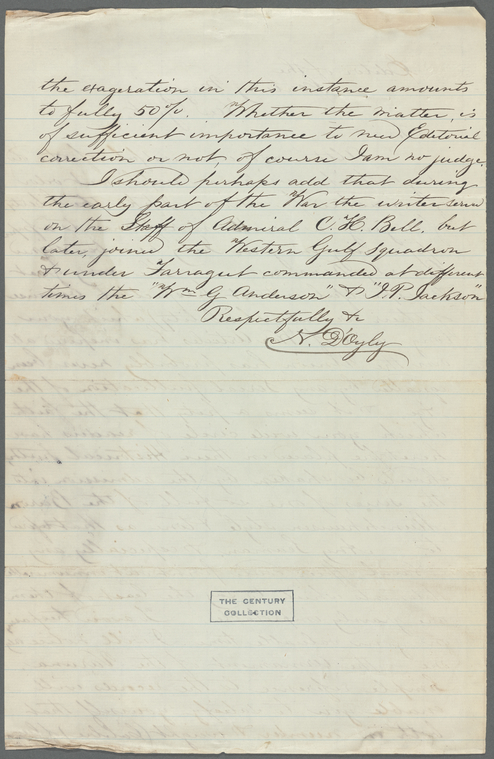 the exageration in this instance amounts
to fully 50%. Whether the matter, is
of sufficient importance to need Editorial
correction or not of course I am no judge.
I should perhaps add that during
the early part of the War the writer served
on the Staff of Admiral C. H. Bell, but
later, joined the Western Gulf squadron
& under Farragut commanded at different
times the "Wm G Anderson" & "J. P. Jackson"
Respectfully &c
N. D'Oyly
THE CENTURY
COLLECTION